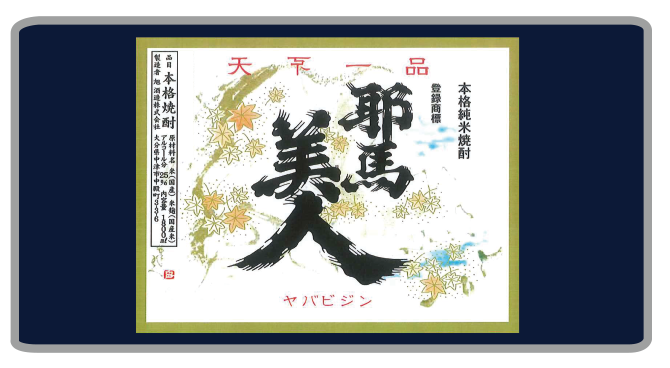 天下一品
本格純米焼酎
登録商標
耶馬
美人
ヤバビジン
品目 本格焼酎
原材料名 米(国産)米麹(国産米)
アルコール分 25% 内容量 1800ml
製造者 旭酒造株式会社 大分県中津市中殿町3-3-6